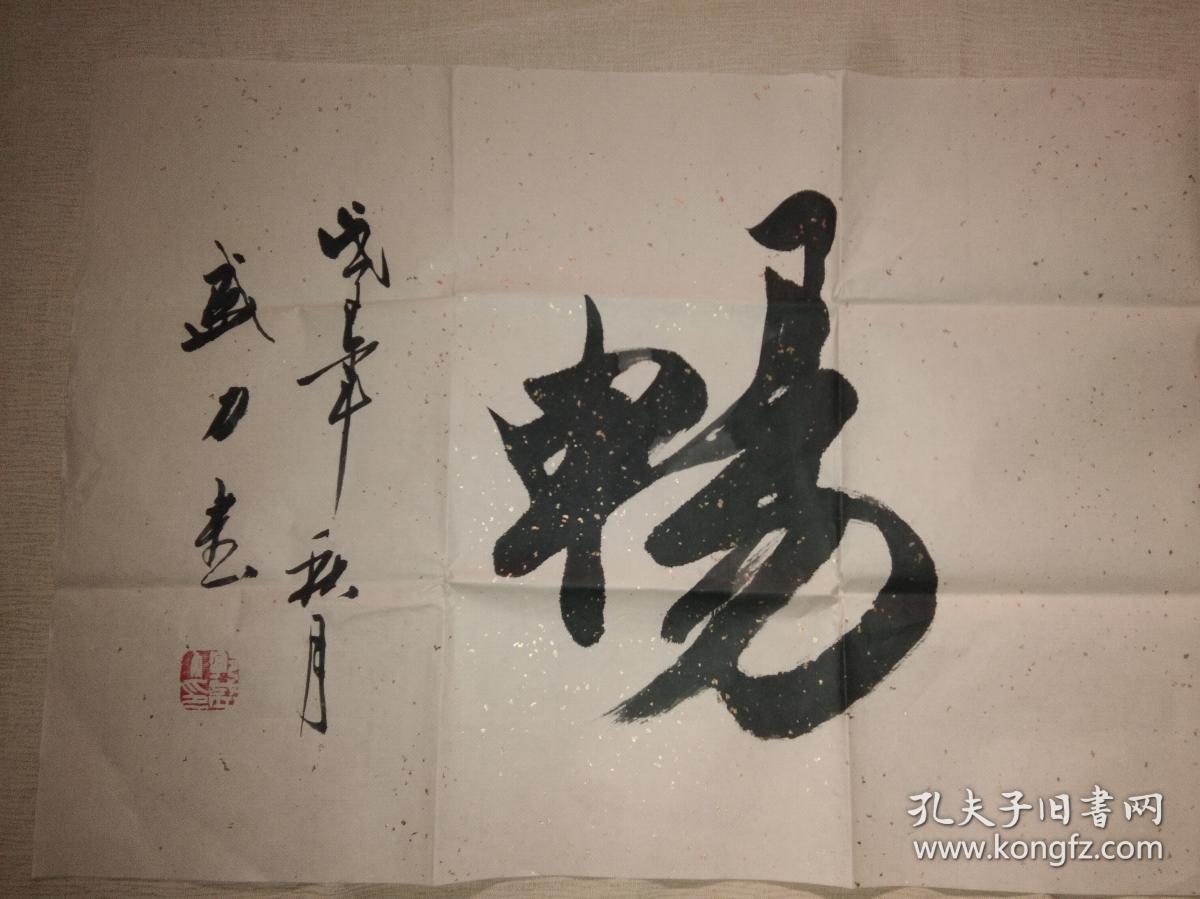 暢
年秋月
盛力書
孔夫子旧書网
www.kongfz.com